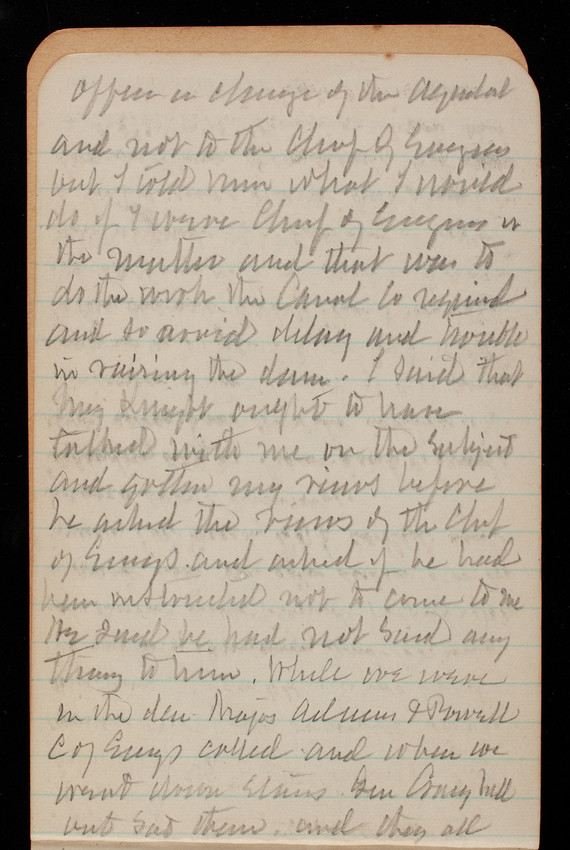 officer in charge of the Aqueduct
and not to the Chief of Engineers
but I told him what I would
do if I were Chief of Engrs in
the matter and that was to
do the work the Canal Co required
and so avoid delay and trouble
in raising the dam. I said that
Maj Knight ought to have
talked with me on the subject
and gotten my views before
he asked the views of the Chf
of Engrs. and asked if he had
been instructed not to come to me
He said he had not said any
thing to him. While we were
in the den Majos Adams & Powell
C of Engs called and when we
went down stairs Gen Craighill
and they all